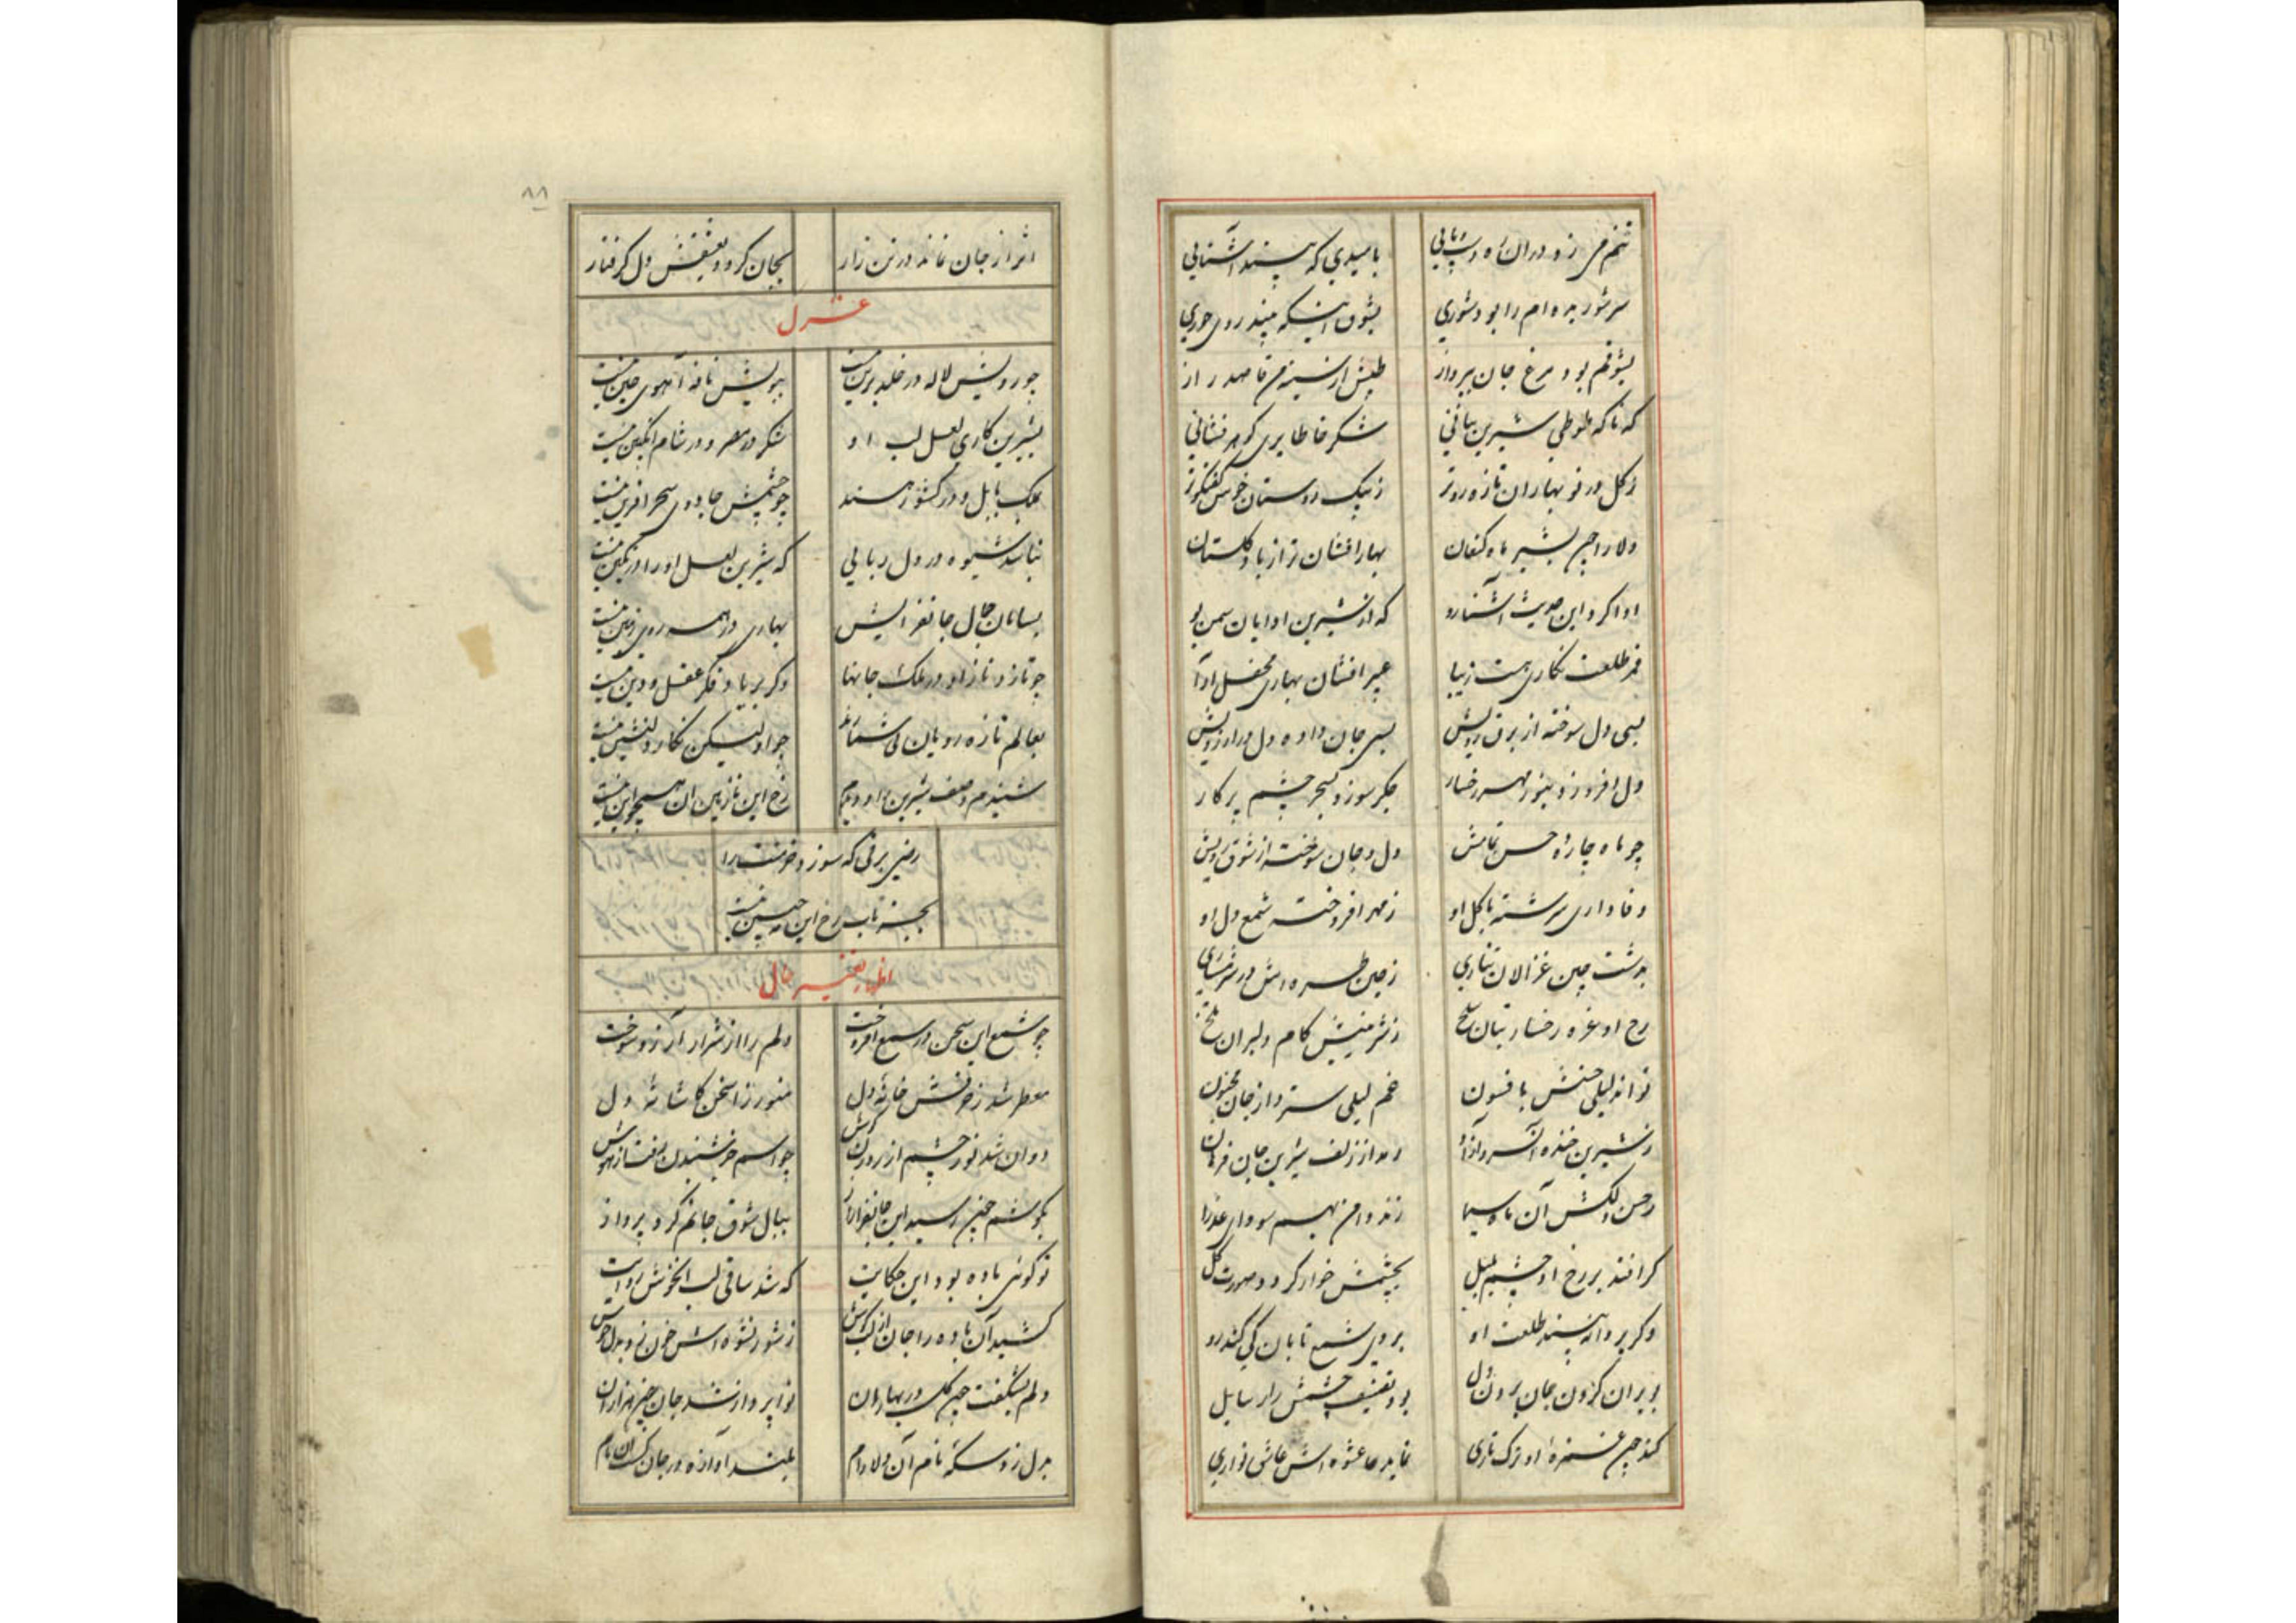 بامیدی که بیند آشنایی
سر شوریده ام را بود شوری بشوق اینکه بیند روی حوری
بشوقم بود مرغ جان بپرواز طپش از سینه من قاصد راز
که ناکه طوطی شیرین بیانی شکرخا طایری کوهر فشانی
ز کل در نو بهاران تازه روتر ز نیک دوستان خوش کفتکوتر
دلارا چون بشیر ماه کنعان بهار افشان تر از باد کلستان
ادا کرد این حدیث آشنا رو که از شیرین ادایان سمن بو
قمر طلعت نکاری هست زیبا عبیر افشان بهاری محفل آرا
بسی دل سوخته از برق رویش بسی جان داده دل در آرزویش
دل افروزد بنور مهر رخسار جکر سوزد بسحر چشم پرکار
چو ماه چارده حسن تمامش دل و جان سوخته از شوق
وفاداری سرشته با کل او ز مهر افروخته شمع دل او
بدشت چین غزالان تتاری ز چین طره اش در شرمساری
رخ او غره رخسار بتان سلخ ز شرمنیش کام دلبران تلخ
تواند لیلی حسنش بافسون غم لیلی سترد از جان مجنون
ز شیرین خنده آن سرو آزاد رود از زلف شیرین جان فرهاد
ز حسن دلکش آن ماه سیما زند وامق بهم سودای عذرا
کر افتد بر رخ او چشم بلبل بچشمش خوار کردد صورت کل
وکر پروانه بیند طلعت او بروی شمع تابان کی کند رو
بویران کردن جان بردن دل بود
کند چون غمزه او ترک تازی نماید عشوه اش عاشق نوازی
۸۸
اثر از جان نماند در تن زار بجان کردد بعشقش دل کرفتار
غزل
چو رویش لاله در خلد برین نیست ببویش نافه آهوی چین نیست
بشیرین کاری لعل لب او شکر در مصر و در شام انکبین نیست
بملک بابل و در کشور هند چو چشمش جادوی سحر افرین نیست
نباشد شیوه در دل ربایی که شیرین لعل او را در نکین نیست
بسامان جمال جانفزایش بهاری در همه روی زمین نیست
چو تازد ناز او در ملک جانها دکر بر یاد فکر عقل و دین نیست
بعالم تازه رویان بی شمارند چو او لیکن نکار دلنشین نیست
شنیدم وصف شیرین را و دیدم رخ این نازنین آن همچو این نیست
رضی برقی که سوزد خرمنت را
بجز تاب رخ این مه جبین نیست
اظهار تغییر حال
چو شمع این سخن در سمع افروخت دلم را از شرار آرزو سوخت
معطر شد ز حرفش خانه دل منور زان سخن کاشانه دل
دوان شد نور چشم از روزن کوش چو اسم حرف شنیدن رفت از هوش
بکوشم چون رسید این جانفزا راز ببال شوق جانم کرد پرواز
تو کوئی باده بود این حکایت که شد ساقی لب آن خوش روایت
کشید آن باده را جان از لب کوش ز شور نشوه اش خون زد بدل جوش
دلم بشکفت چون کل در بهاران نوا پرداز شد جان چون هزاران
بدل زد سکه نام آن دلارام بلند آوازه در جان کشت آن نام